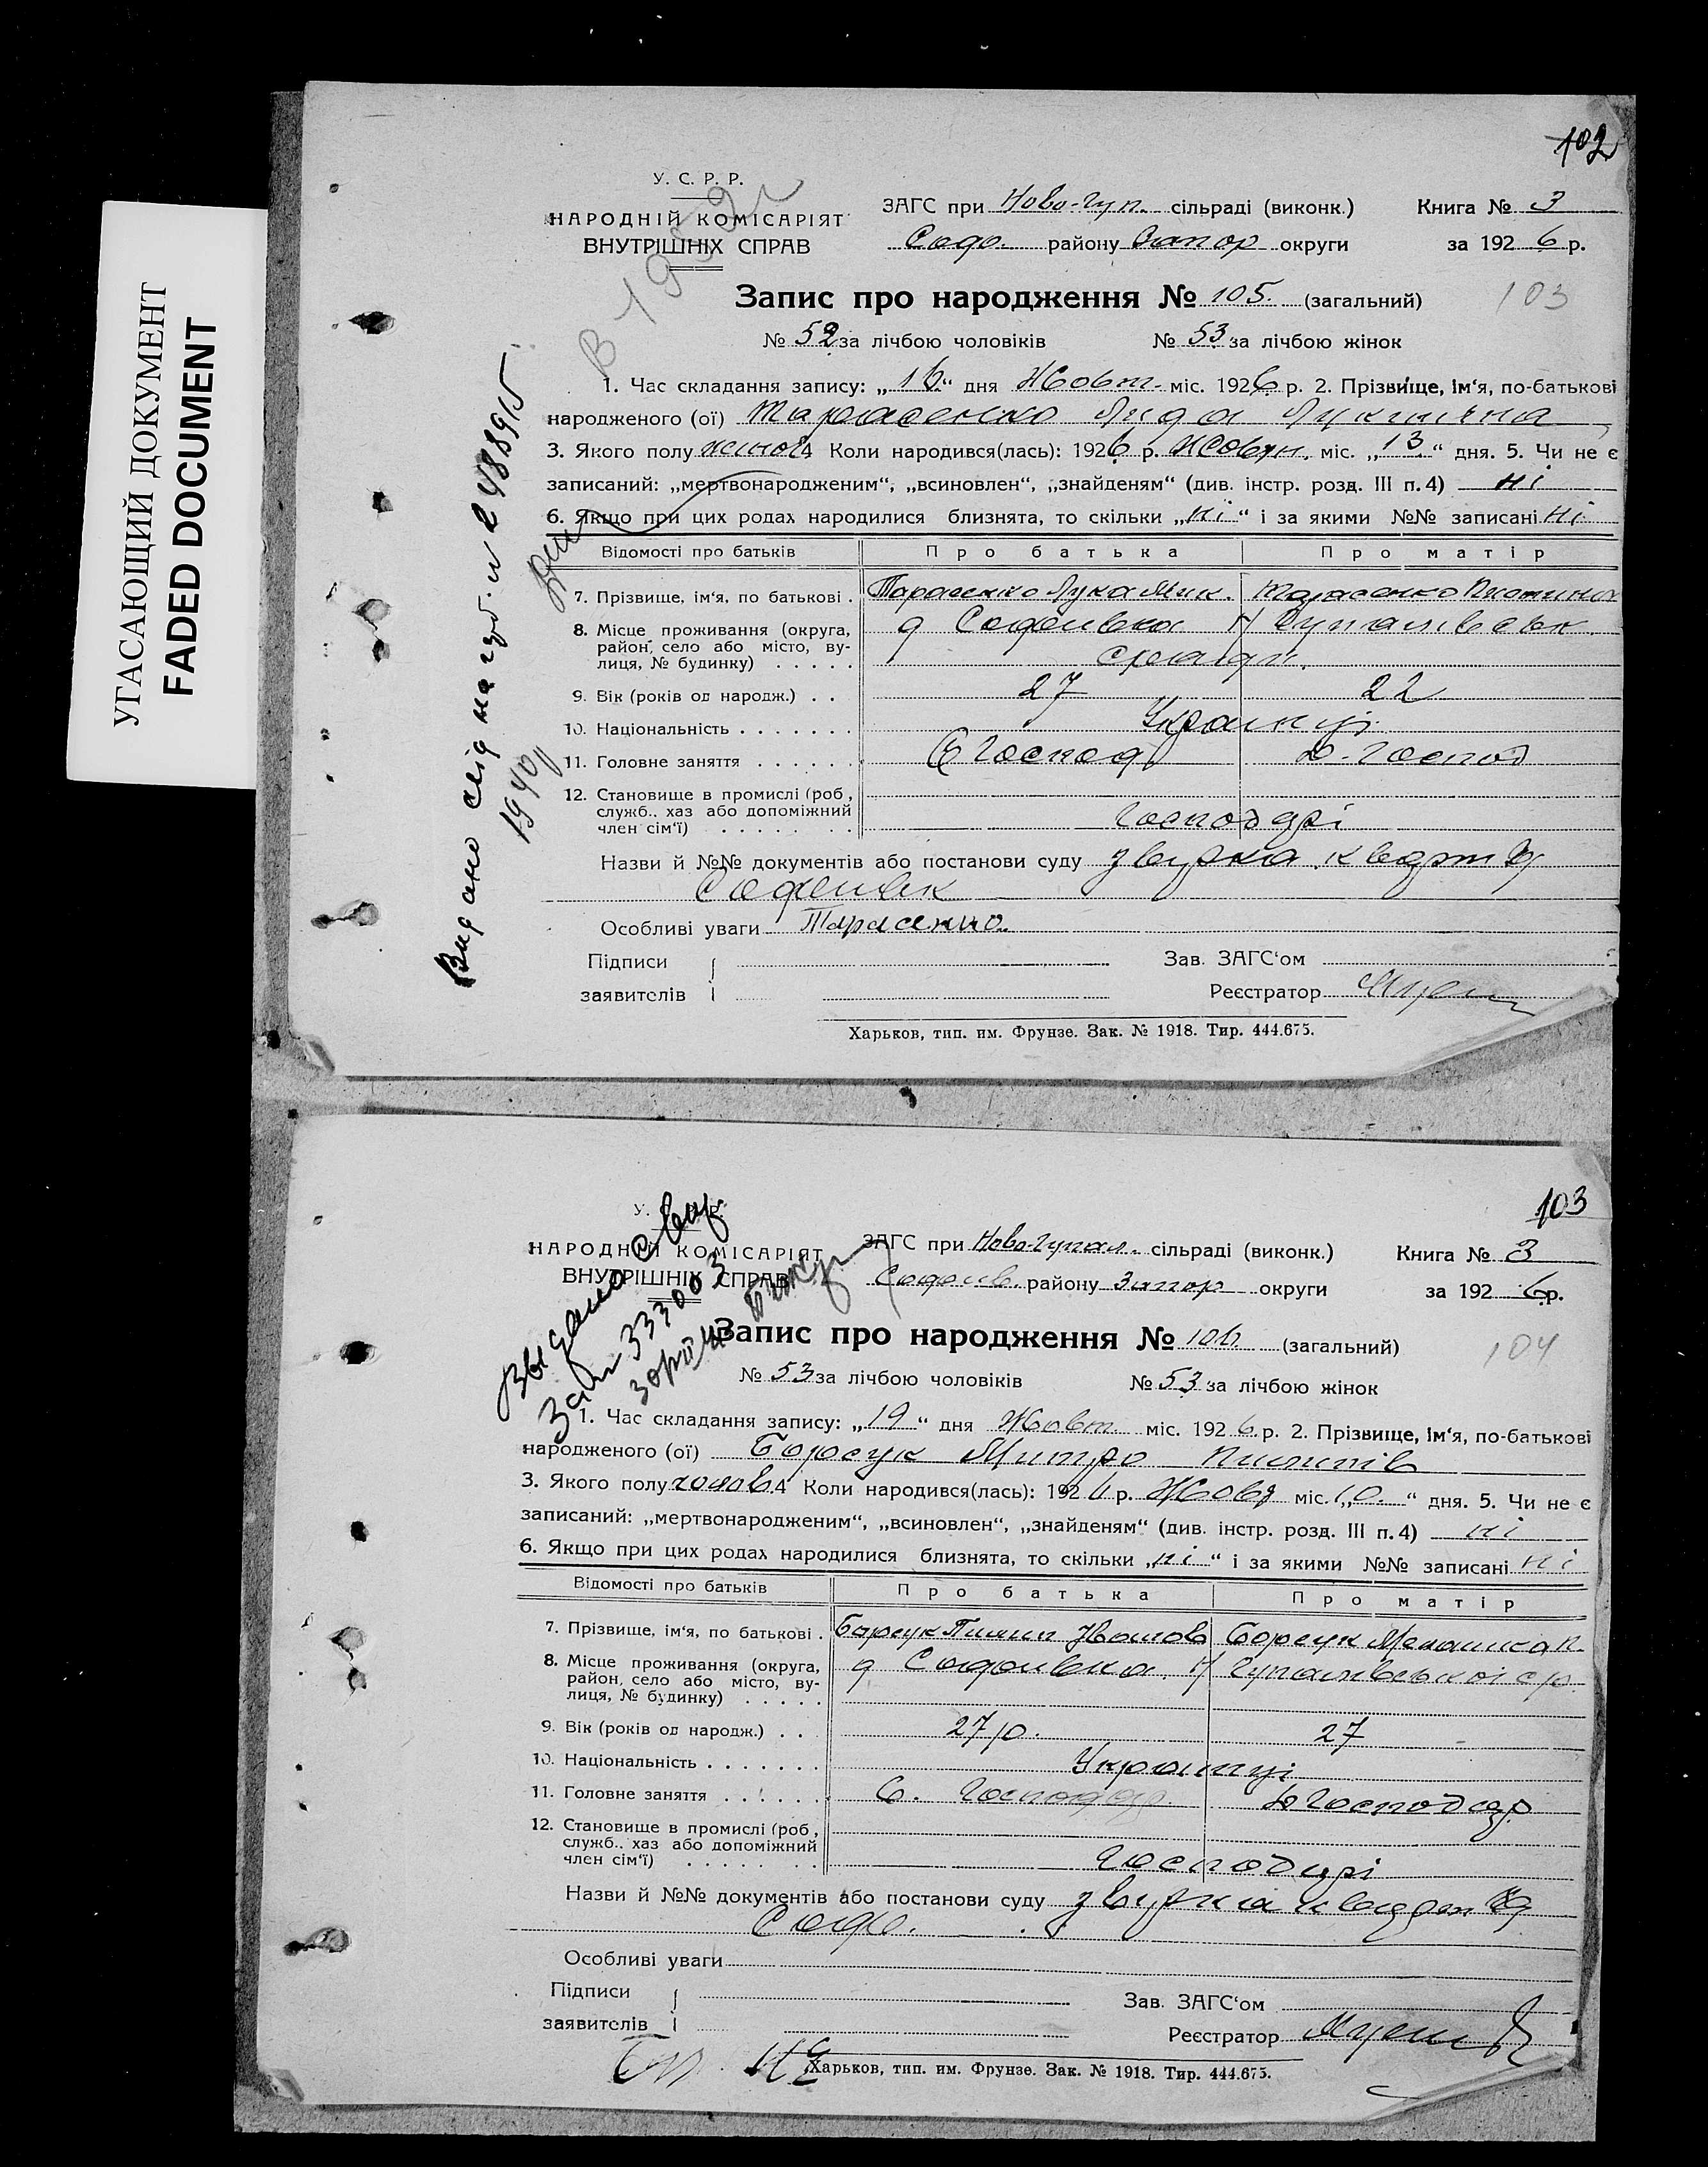 УГАСАЮЩИЙ ДОКУМЕНТ
FADED DOCUMENT
102
У. С. Р. Р.
НАРОДНІЙ КОМІСАРІЯТ
ВНУТРІШНІХ СПРАВ
ЗАГС при Ново-Гуп. сільраді (виконк.) Книга № 3
Софі. району Запор округи за 1926 р.
Запис про народження № 105. (загальний) 103
№ 52 за лічбою чоловіків № 53 за лічбою жінок
1. Час складання запису: „16“ дня Жовт. міс. 1926 р. 2. Прізвище, ім‘я, по-батькові
народженого (ої) Тарасенко Лида Лукинична
3. Якого полу жіноч 4. Коли народився(лась): 1926 р. Жовтн. міс. „13“ дня. 5. Чи не є
записаний: „мертвонародженим“, „всиновлен“, „знайденям“ (див. інстр. розд. III п. 4) ні
6. Якщо при цих родах народилися близнята, то скільки „ні“ і за якими №№ записані ні
Відомості про батьків Про батька Про матір
7. Прізвище, ім‘я, по батькові . Тарасенко Лука Мик. Тарасенко
8. Місце проживання (округа, д Софиевка Н Гупалівськ.
район, село або місто, ву-
лиця, № будинку) . . . . . сільради.
9. Вік (років од народж.) . . 27 22
10. Національність . . . . . . . Українці
11. Головне заняття . . . . . . С господ Д-господ
12. Становище в промислі (роб,
служб., хаз або допоміжний
член сім‘ї) . . . . . . . Господарі
Назви й №№ документів або постанови суду
Софиевк
Особливі уваги Тарасенко.
Підписи Зав. ЗАГС‘ом
заявителів Реєстратор
Харьков, тип. им. Фрунзе. Зак. № 1918. Тир. 444.675.
Видано слід
1940
103
У. Р.
НАРОДНІЙ КОМІСАРІЯТ
ВНУТРІШНІХ СПРАВ
Выдано
За № 333003
ЗАГС при Ново-Гупал. сільраді (виконк.) Книга № 3
Софиев. району Запор округи за 1926 р.
Запис про народження № 106. (загальний) 104
№ 53 за лічбою чоловіків № 53 за лічбою жінок
1. Час складання запису: „19“ дня Жовт. міс. 1926 р. 2. Прізвище, ім‘я, по-батькові
народженого (ої) Борсук Митро Пилипів
3. Якого полу чолов. 4 Коли народився(лась): 1926 р. Жовт міс. „10.“ дня. 5. Чи не є
записаний: „мертвонародженим“, „всиновлен“, „знайденям“ (див. інстр. розд. III п. 4) ні
6. Якщо при цих родах народилися близнята, то скільки „ні“ і за якими №№ записані ні
Відомості про батьків Про батька Про матір
7. Прізвище, ім‘я, по батькові . Борсук Пилип Іванов Борсук Меланка П.
8. Місце проживання (округа, д Софиевка. Н Гупалівської с/р.
район, село або місто, ву-
лиця, № будинку) . . . . .
9. Вік (років од народж.) . . 27 р. 27
10. Національність . . . . . . . Українці
11. Головне заняття . . . . . . С. господар Д господар
12. Становище в промислі (роб,
служб., хаз або допоміжний
член сім‘ї) . . . . . . . Господарі
Назви й №№ документів або постанови суду
Софи.
Особливі уваги
Підписи Зав. ЗАГС‘ом
заявителів Реєстратор
Харьков, тип. им. Фрунзе. Зак. № 1918. Тир. 444.675.